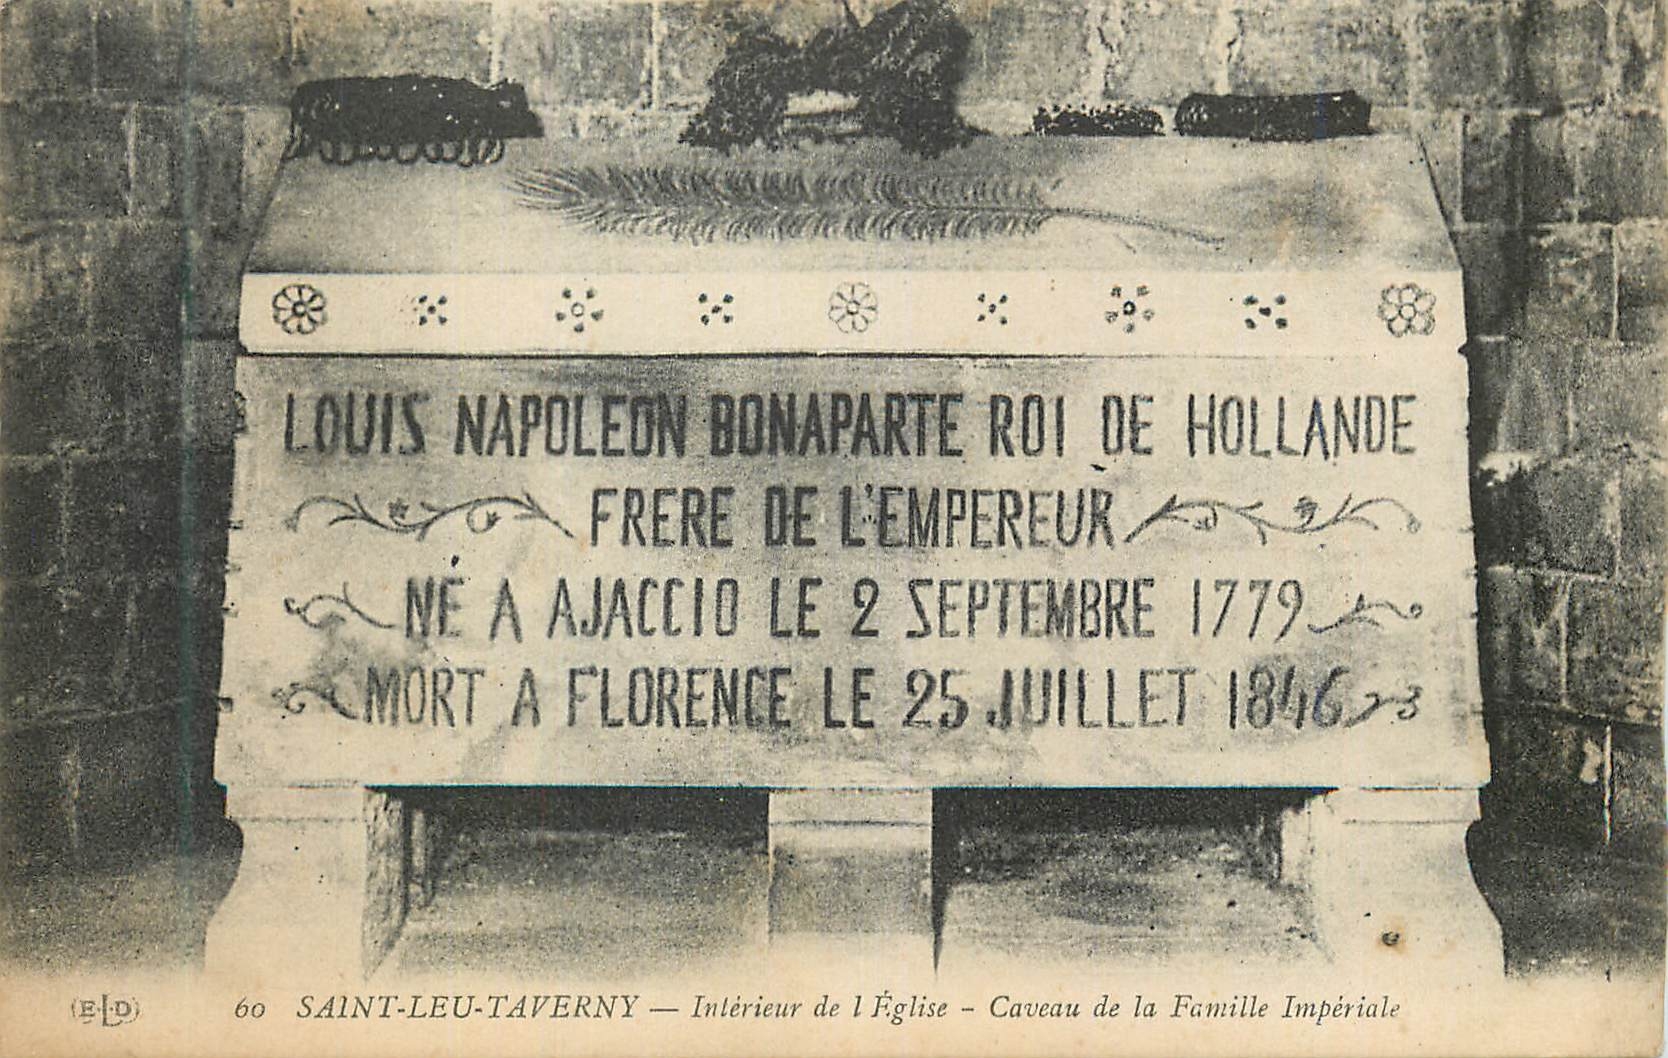 LOUIS NAPOLEON BONAPARTE ROI DE HOLLANDE
FRERE DE L'EMPEREUR
NÉ A AJACCIO LE 2 SEPTEMBRE 1779
MORT A FLORENCE LE 25 JUILLET 1846
(E.L.D) 60 SAINT-LEU-TAVERNY — Intérieur de l'Église - Caveau de la Famille Impériale